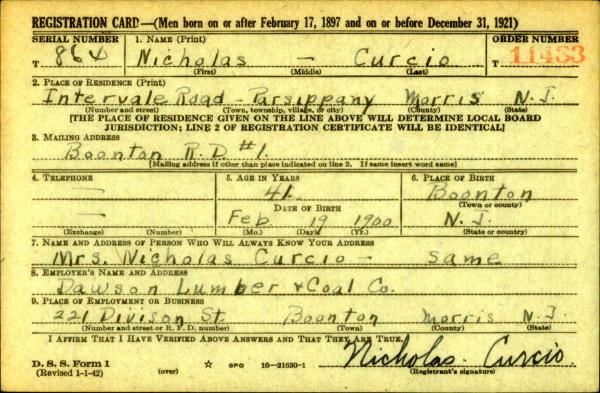 REGISTRATION CARD—(Men born on or after February 17, 1897 and on or before December 31, 1921)
SERIAL NUMBER 1. NAME (Print) ORDER NUMBER
T 864 Nicholas — Curcio T 11453
(First) (Middle) (Last)
2. PLACE OF RESIDENCE (Print)
Intervale Road - Parsippany Morris N. J.
(Number and street) (Town, township, village, or city) (County) (State)
[THE PLACE OF RESIDENCE GIVEN ON THE LINE ABOVE WILL DETERMINE LOCAL BOARD
JURISDICTION; LINE 2 OF REGISTRATION CERTIFICATE WILL BE IDENTICAL]
3. MAILING ADDRESS
Boonton R.D #1.
[Mailing address if other than place indicated on line 2. If same insert word same]
4. TELEPHONE 5. AGE IN YEARS 6. PLACE OF BIRTH
— 41 Boonton
DATE OF BIRTH (Town or county)
— Feb 19 1900 N. J.
(Exchange) (Number) (Mo.) (Day) (Yr.) (State or country)
7. NAME AND ADDRESS OF PERSON WHO WILL ALWAYS KNOW YOUR ADDRESS
Mrs. Nicholas Curcio — Same
8. EMPLOYER'S NAME AND ADDRESS
Dawson Lumber & Coal Co.
9. PLACE OF EMPLOYMENT OR BUSINESS
221 Divison St. Boonton Morris N. J.
(Number and street or R. F. D. number) (Town) (County) (State)
I AFFIRM THAT I HAVE VERIFIED ABOVE ANSWERS AND THAT THEY ARE TRUE.
D. S. S. Form 1 Nicholas Curcio
(Revised 1-1-42) (over) ☆ GPO 16—21630-1 (Registrant's signature)